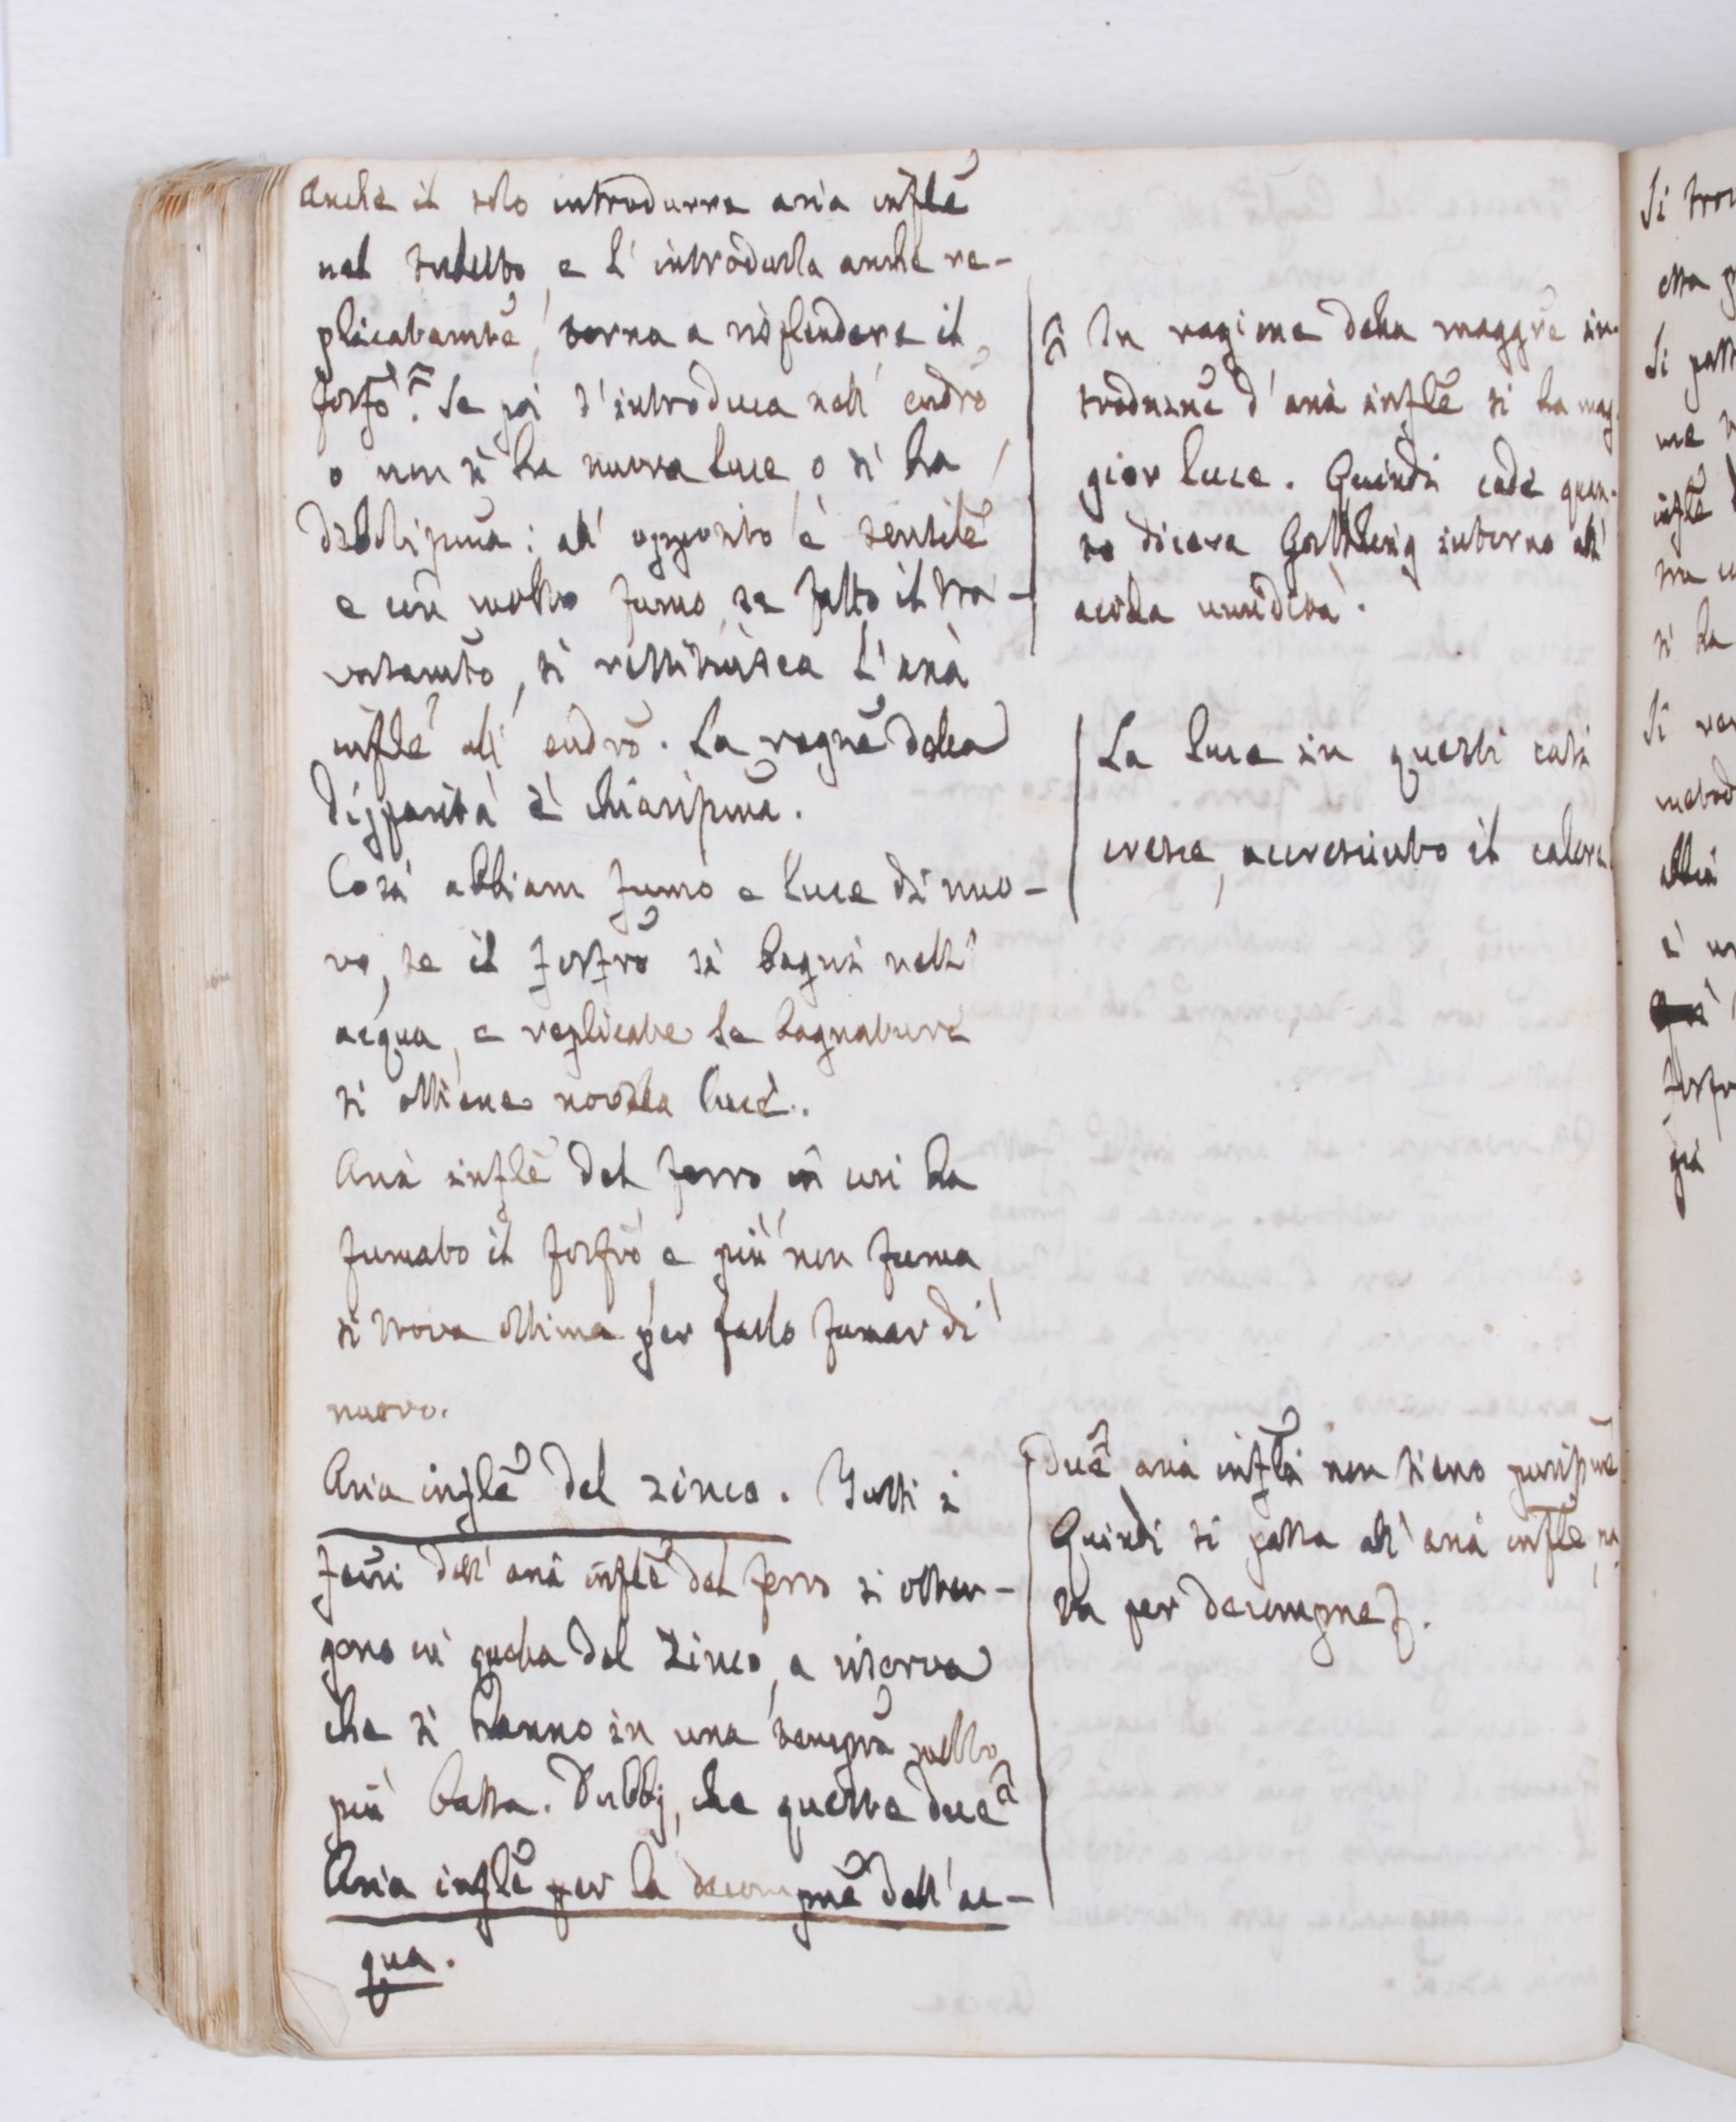 Anche il solo introdurre aria infle
nel tubetto, e l'introdurla anche re-
plicatamte, torna a risplendere il
fosfo. Se poi s'introduca nell' eudro
o non si ha nuova luce, o si ha
debolissima: all' opposto è sensile
e con molto fumo, se fatto il tra-
vasamto, si restituisca l'aria
infle all' eudro. La ragne della
disparità è chiarissima.
Così abbiam fumo e luce di nuo-
vo, se il fosfro si bagni nell'
acqua, e replicate le bagnature
si ottiene novella luce.
Aria infle del ferro in cui ha
fumato il fosfro e più non fuma,
si trova ottima per farlo fumar di
nuovo.
Aria infle del zinco. Tutti i
feni dell'aria infle del ferro si otten-
gono in quella del Zinco, a riserva
che si hanno in una tempra molto
più bassa. Dubbj, che queste due
Aria infle per la decompne dell'ac-
qua.
In ragione della maggre in-
troduzne d'aria infle si ha mag-
gior luce. Quindi cade quan-
to diceva Gottling intorno all'
acida umidità.
La luce in questi casi
cresce, accresciuto il calore
due arie infli non sieno purissime
Quindi si passa all'aria infle, na-
ta per decompne